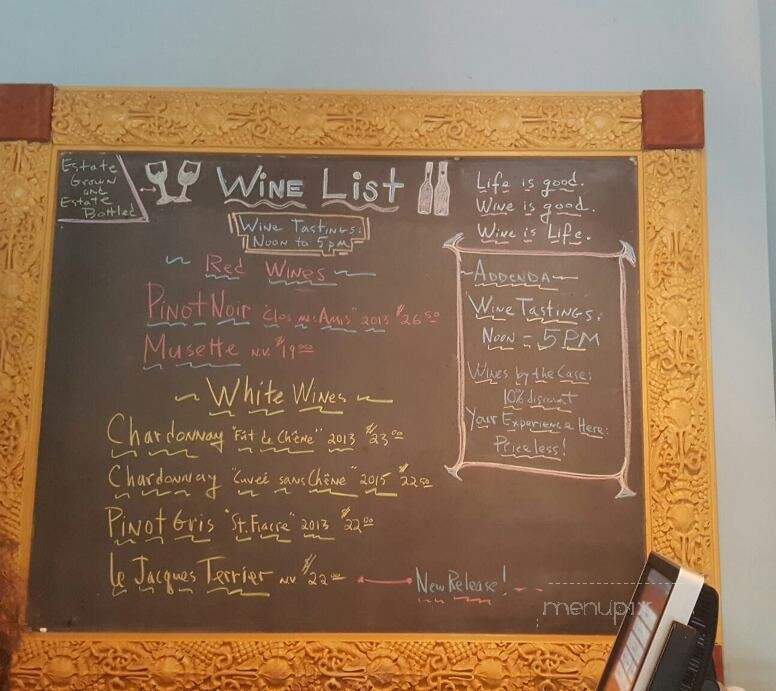 Estate
Grown
and
Estate
Bottled
Wine List
Wine Tastings:
Noon to 5pm
Red Wines
Pinot Noir "Clos mes Amis" 2013 $26.50
Musette N.V. $19.00
White Wines
Chardonnay "Fût de Chêne" 2013 $23.00
Chardonnay "Cuvée sans Chêne" 2015 $22.50
Pinot Gris "St. Fiacre" 2013 $22.00
Le Jacques Terrier N.V. $22.00
New Release!
Life is good.
Wine is good.
Wine is Life.
Addenda
Wine Tastings:
Noon - 5PM
Wines by the Case:
10% discount
Your Experience Here:
Priceless!
menupix